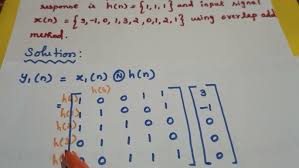 response is h(n) = {1,1,1} and input signal
x(n) = {3,-1,0,1,3,2,0,1,2,1} using overlap add
method.
Solution:
y₁(n) = x₁(n) Ⓝ h(n)
h(n)
= 1 0 0 1 1 3
1 1 0 0 1 -1
1 1 1 0 0 0
0 1 1 1 0
0 1 1 1